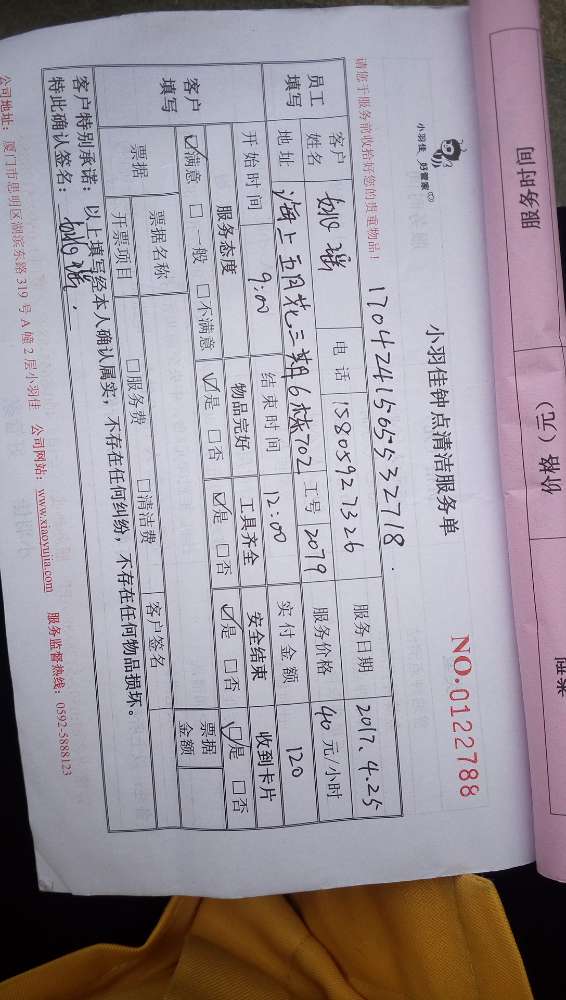 服务时间
价格（元）
小羽佳 好管家
小羽佳钟点清洁服务单
NO.0122788
请您于服务前收拾好您的贵重物品！
17042415055532718.
员工填写 客户姓名 姚瑞 电话 15805927326 服务日期 2017.4.25
地址 海上五月花三期6栋702 工号 2079 服务价格 40元/小时
客户填写 开始时间 9:00 结束时间 12:00 实付金额 120
服务态度 物品完好 工具齐全 安全结束 收到卡片
☑满意 □一般 □不满意 ☑是 □否 ☑是 □否 ☑是 □否 ☑是 □否
票据 票据名称 客户签名 票据金额
开票项目 □服务费 □清洁费
客户特别承诺：以上填写经本人确认属实，不存在任何纠纷，不存在任何物品损坏。
特此确认签名： 姚瑞.
公司地址：厦门市思明区湖滨东路319号A幢2层小羽佳 公司网站：www.xiaoyujia.com 服务监督热线：0592-5888123